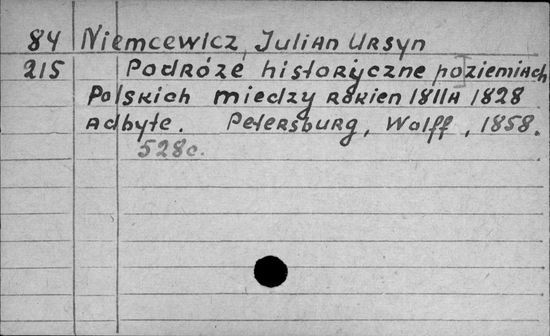 84 Niemcewicz, Julian Ursyn
215 Podróże historyczne poziemiach
Polskich miedzy rokien 1811A 1828
Adbyte. Petersburg, Wolff, 1858.
528c.